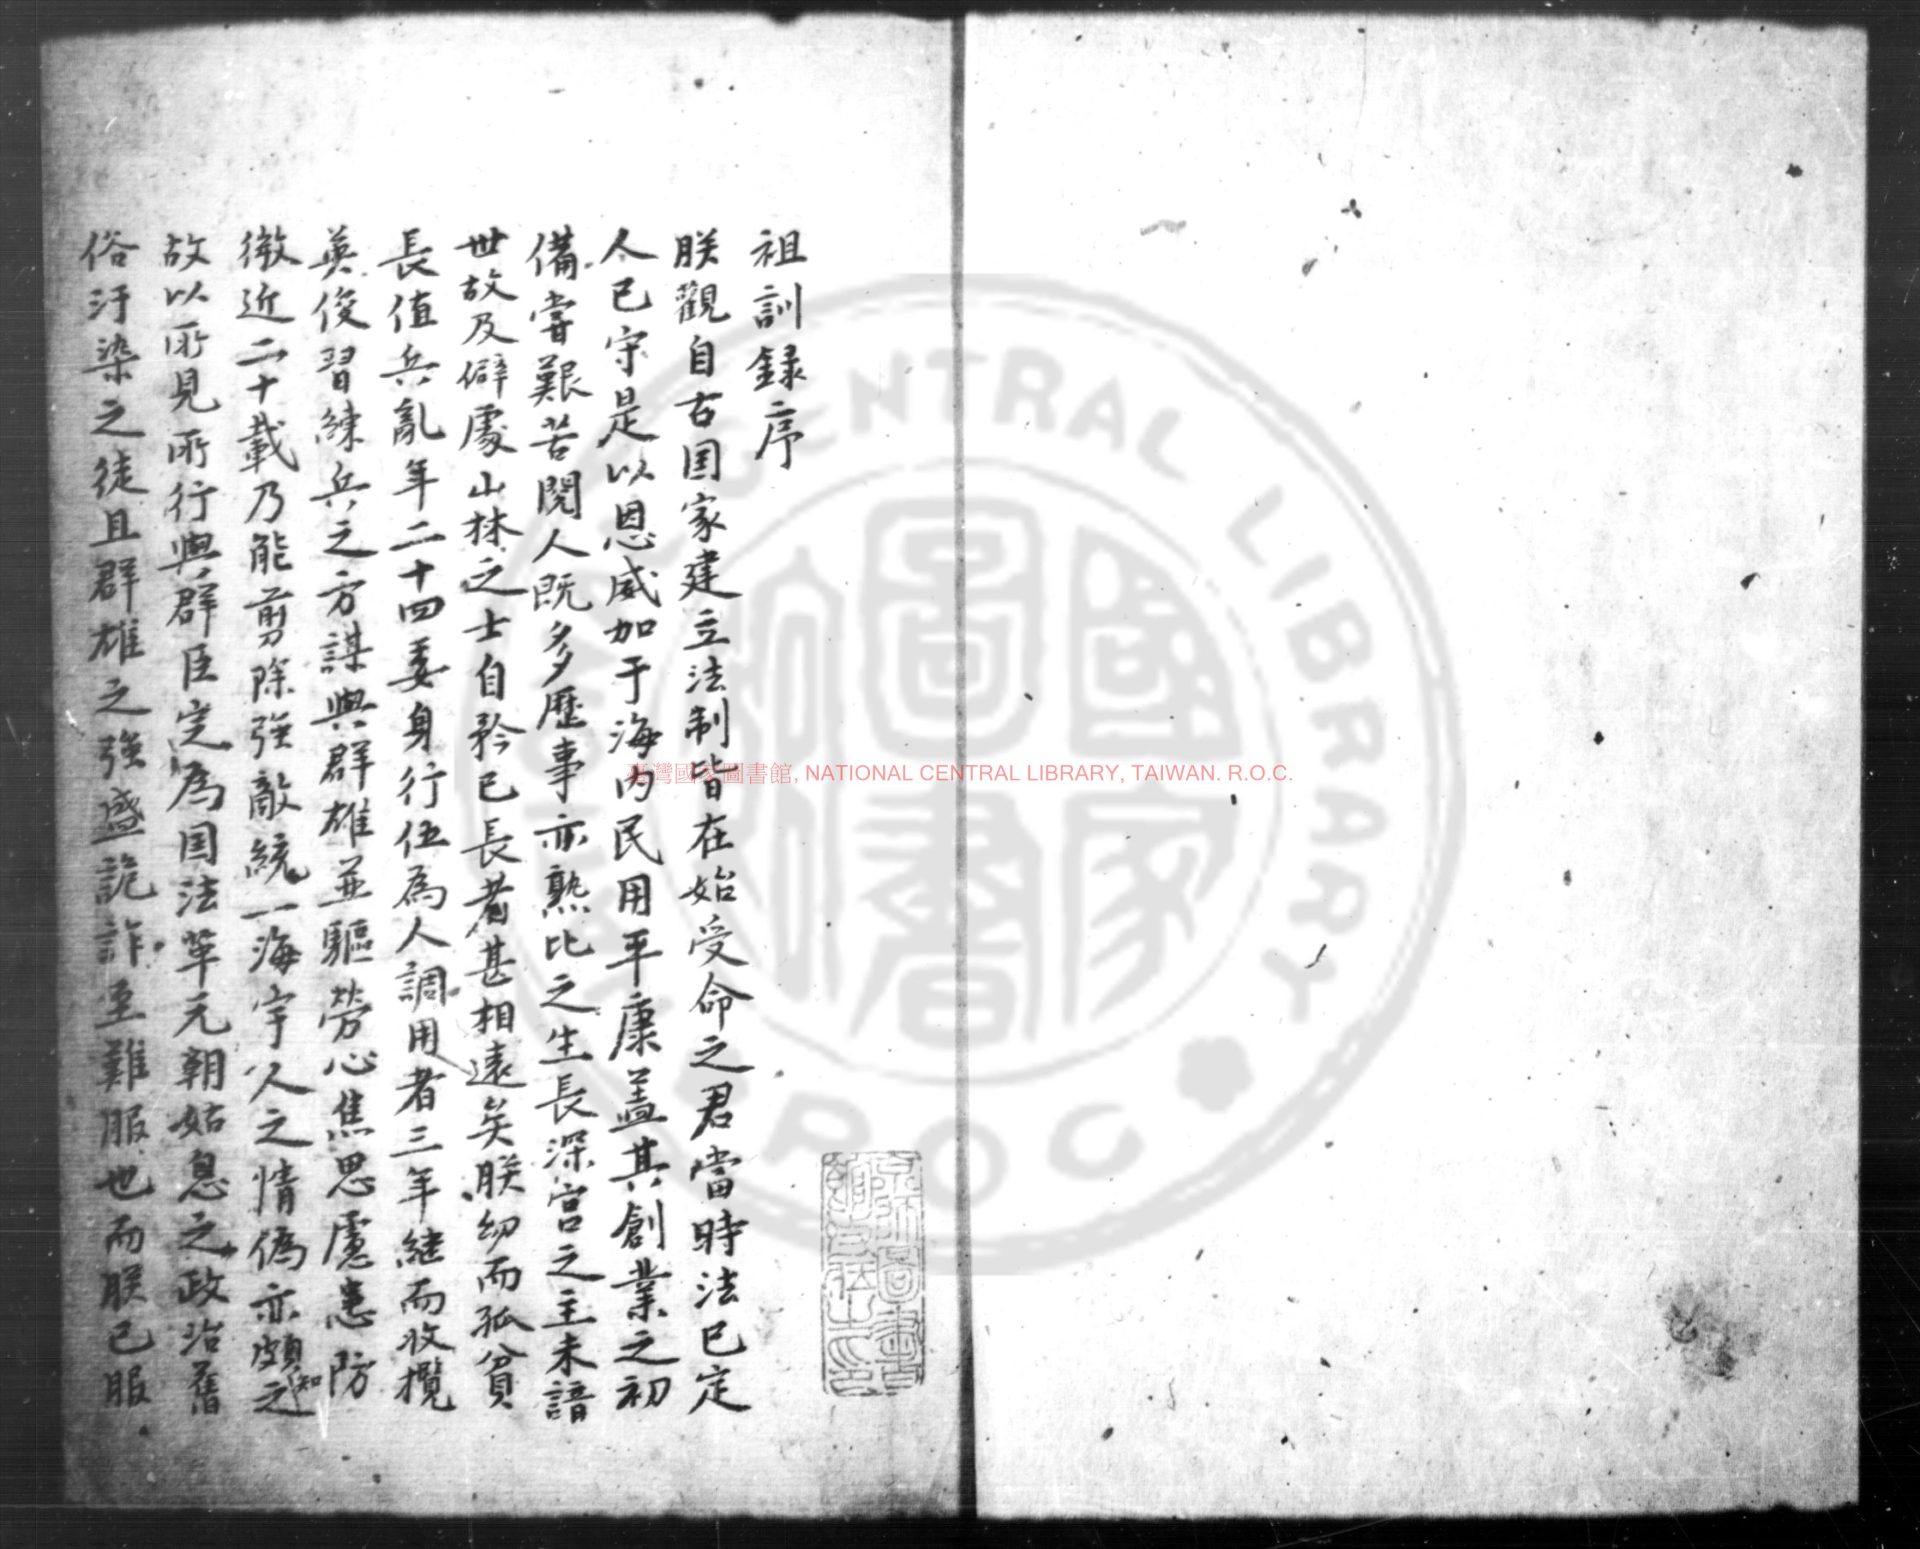 祖訓録序
朕觀自古国家建立法制皆在始受命之君當時法已定
人已守是以恩威加于海內民用平康盖其創業之初
備嘗艱苦閱人既多歷事亦熟比之生長深宮之主未諳
世故及僻處山林之士自矜已長者甚相遠矣朕幼而孤貧
長值兵亂年二十四委身行伍為人調用者三年継而收攬
英俊習練兵之方謀與群雄並驅勞心焦思慮患防
微近二十載乃能剪除强敵統一海宇人之情偽亦頗知之
故以所見所行與群臣定為国法革元朝姑息之政治舊
俗汙染之徒且群雄之强盛詭詐至難服也而朕已服
臺灣國家圖書館, NATIONAL CENTRAL LIBRARY, TAIWAN. R.O.C.
CENTRAL LIBRARY
ROC
國家
圖書